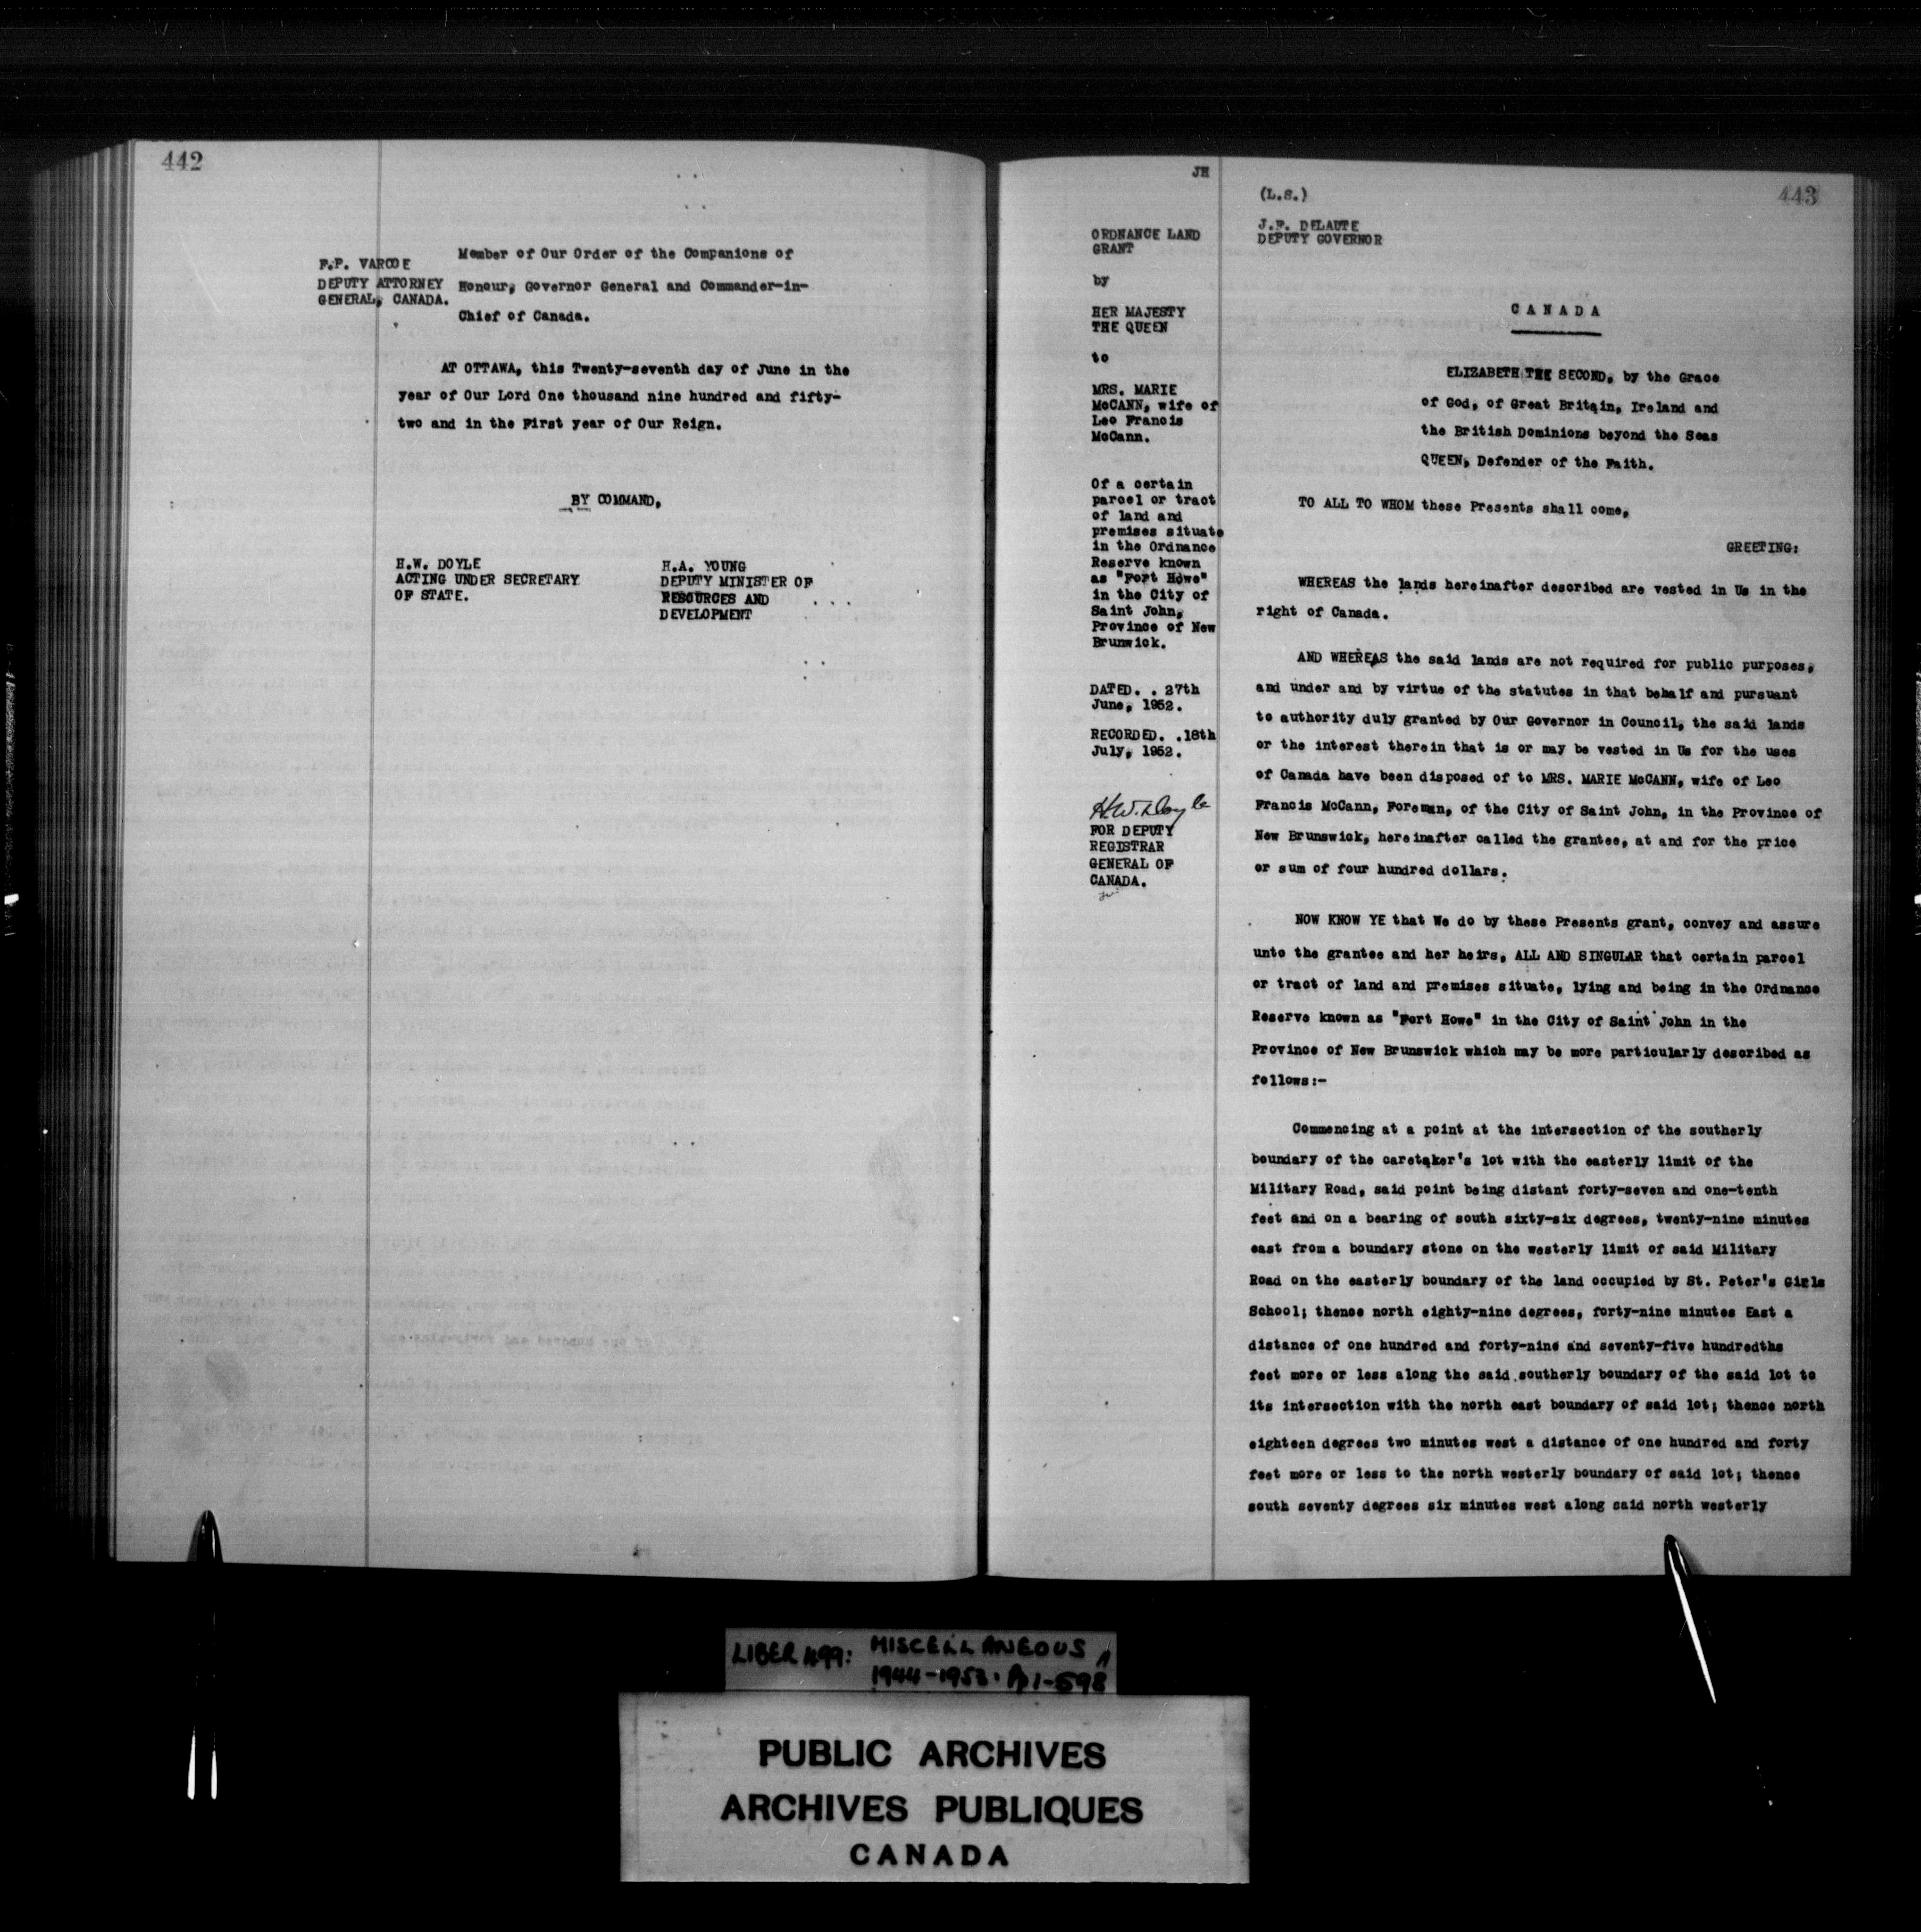 442
F.P. VARCOE
DEPUTY ATTORNEY
GENERAL, CANADA.
Member of Our Order of the Companions of
Honour, Governor General and Commander-in-
Chief of Canada.
AT OTTAWA, this Twenty-seventh day of June in the
year of Our Lord One thousand nine hundred and fifty-
two and in the First year of Our Reign.
BY COMMAND,
H.W. DOYLE
ACTING UNDER SECRETARY
OF STATE.
H.A. YOUNG
DEPUTY MINISTER OF
RESOURCES AND
DEVELOPMENT
JH
443
ORDNANCE LAND
GRANT
by
HER MAJESTY
THE QUEEN
to
MRS. MARIE
McCANN, wife of
Leo Francis
McCann.
Of a certain
parcel or tract
of land and
premises situate
in the Ordnance
Reserve known
as "Fort Howe"
in the City of
Saint John,
Province of New
Brunwick.
DATED. . 27th
June, 1952.
RECORDED. .18th
July, 1952.
H.W. Doyle
FOR DEPUTY
REGISTRAR
GENERAL OF
CANADA.
(L.S.)
J.F. DELAUTE
DEPUTY GOVERNOR
CANADA
ELIZABETH THE SECOND, by the Grace
of God, of Great Britain, Ireland and
the British Dominions beyond the Seas
QUEEN, Defender of the Faith.
TO ALL TO WHOM these Presents shall come,
GREETING:
WHEREAS the lands hereinafter described are vested in Us in the
right of Canada.
AND WHEREAS the said lands are not required for public purposes,
and under and by virtue of the statutes in that behalf and pursuant
to authority duly granted by Our Governor in Council, the said lands
or the interest therein that is or may be vested in Us for the uses
of Canada have been disposed of to MRS. MARIE McCANN, wife of Leo
Francis McCann, Foreman, of the City of Saint John, in the Province of
New Brunswick, hereinafter called the grantee, at and for the price
or sum of four hundred dollars.
NOW KNOW YE that We do by these Presents grant, convey and assure
unto the grantee and her heirs, ALL AND SINGULAR that certain parcel
or tract of land and premises situate, lying and being in the Ordnance
Reserve known as "Fort Howe" in the City of Saint John in the
Province of New Brunswick which may be more particularly described as
follows:-
Commencing at a point at the intersection of the southerly
boundary of the caretaker's lot with the easterly limit of the
Military Road, said point being distant forty-seven and one-tenth
feet and on a bearing of south sixty-six degrees, twenty-nine minutes
east from a boundary stone on the westerly limit of said Military
Road on the easterly boundary of the land occupied by St. Peter's Girls
School; thence north eighty-nine degrees, forty-nine minutes East a
distance of one hundred and forty-nine and seventy-five hundredths
feet more or less along the said southerly boundary of the said lot to
its intersection with the north east boundary of said lot; thence north
eighteen degrees two minutes west a distance of one hundred and forty
feet more or less to the north westerly boundary of said lot; thence
south seventy degrees six minutes west along said north westerly
LIBER 499: MISCELLANEOUS
1944-1953. Pp 1-598
PUBLIC ARCHIVES
ARCHIVES PUBLIQUES
CANADA